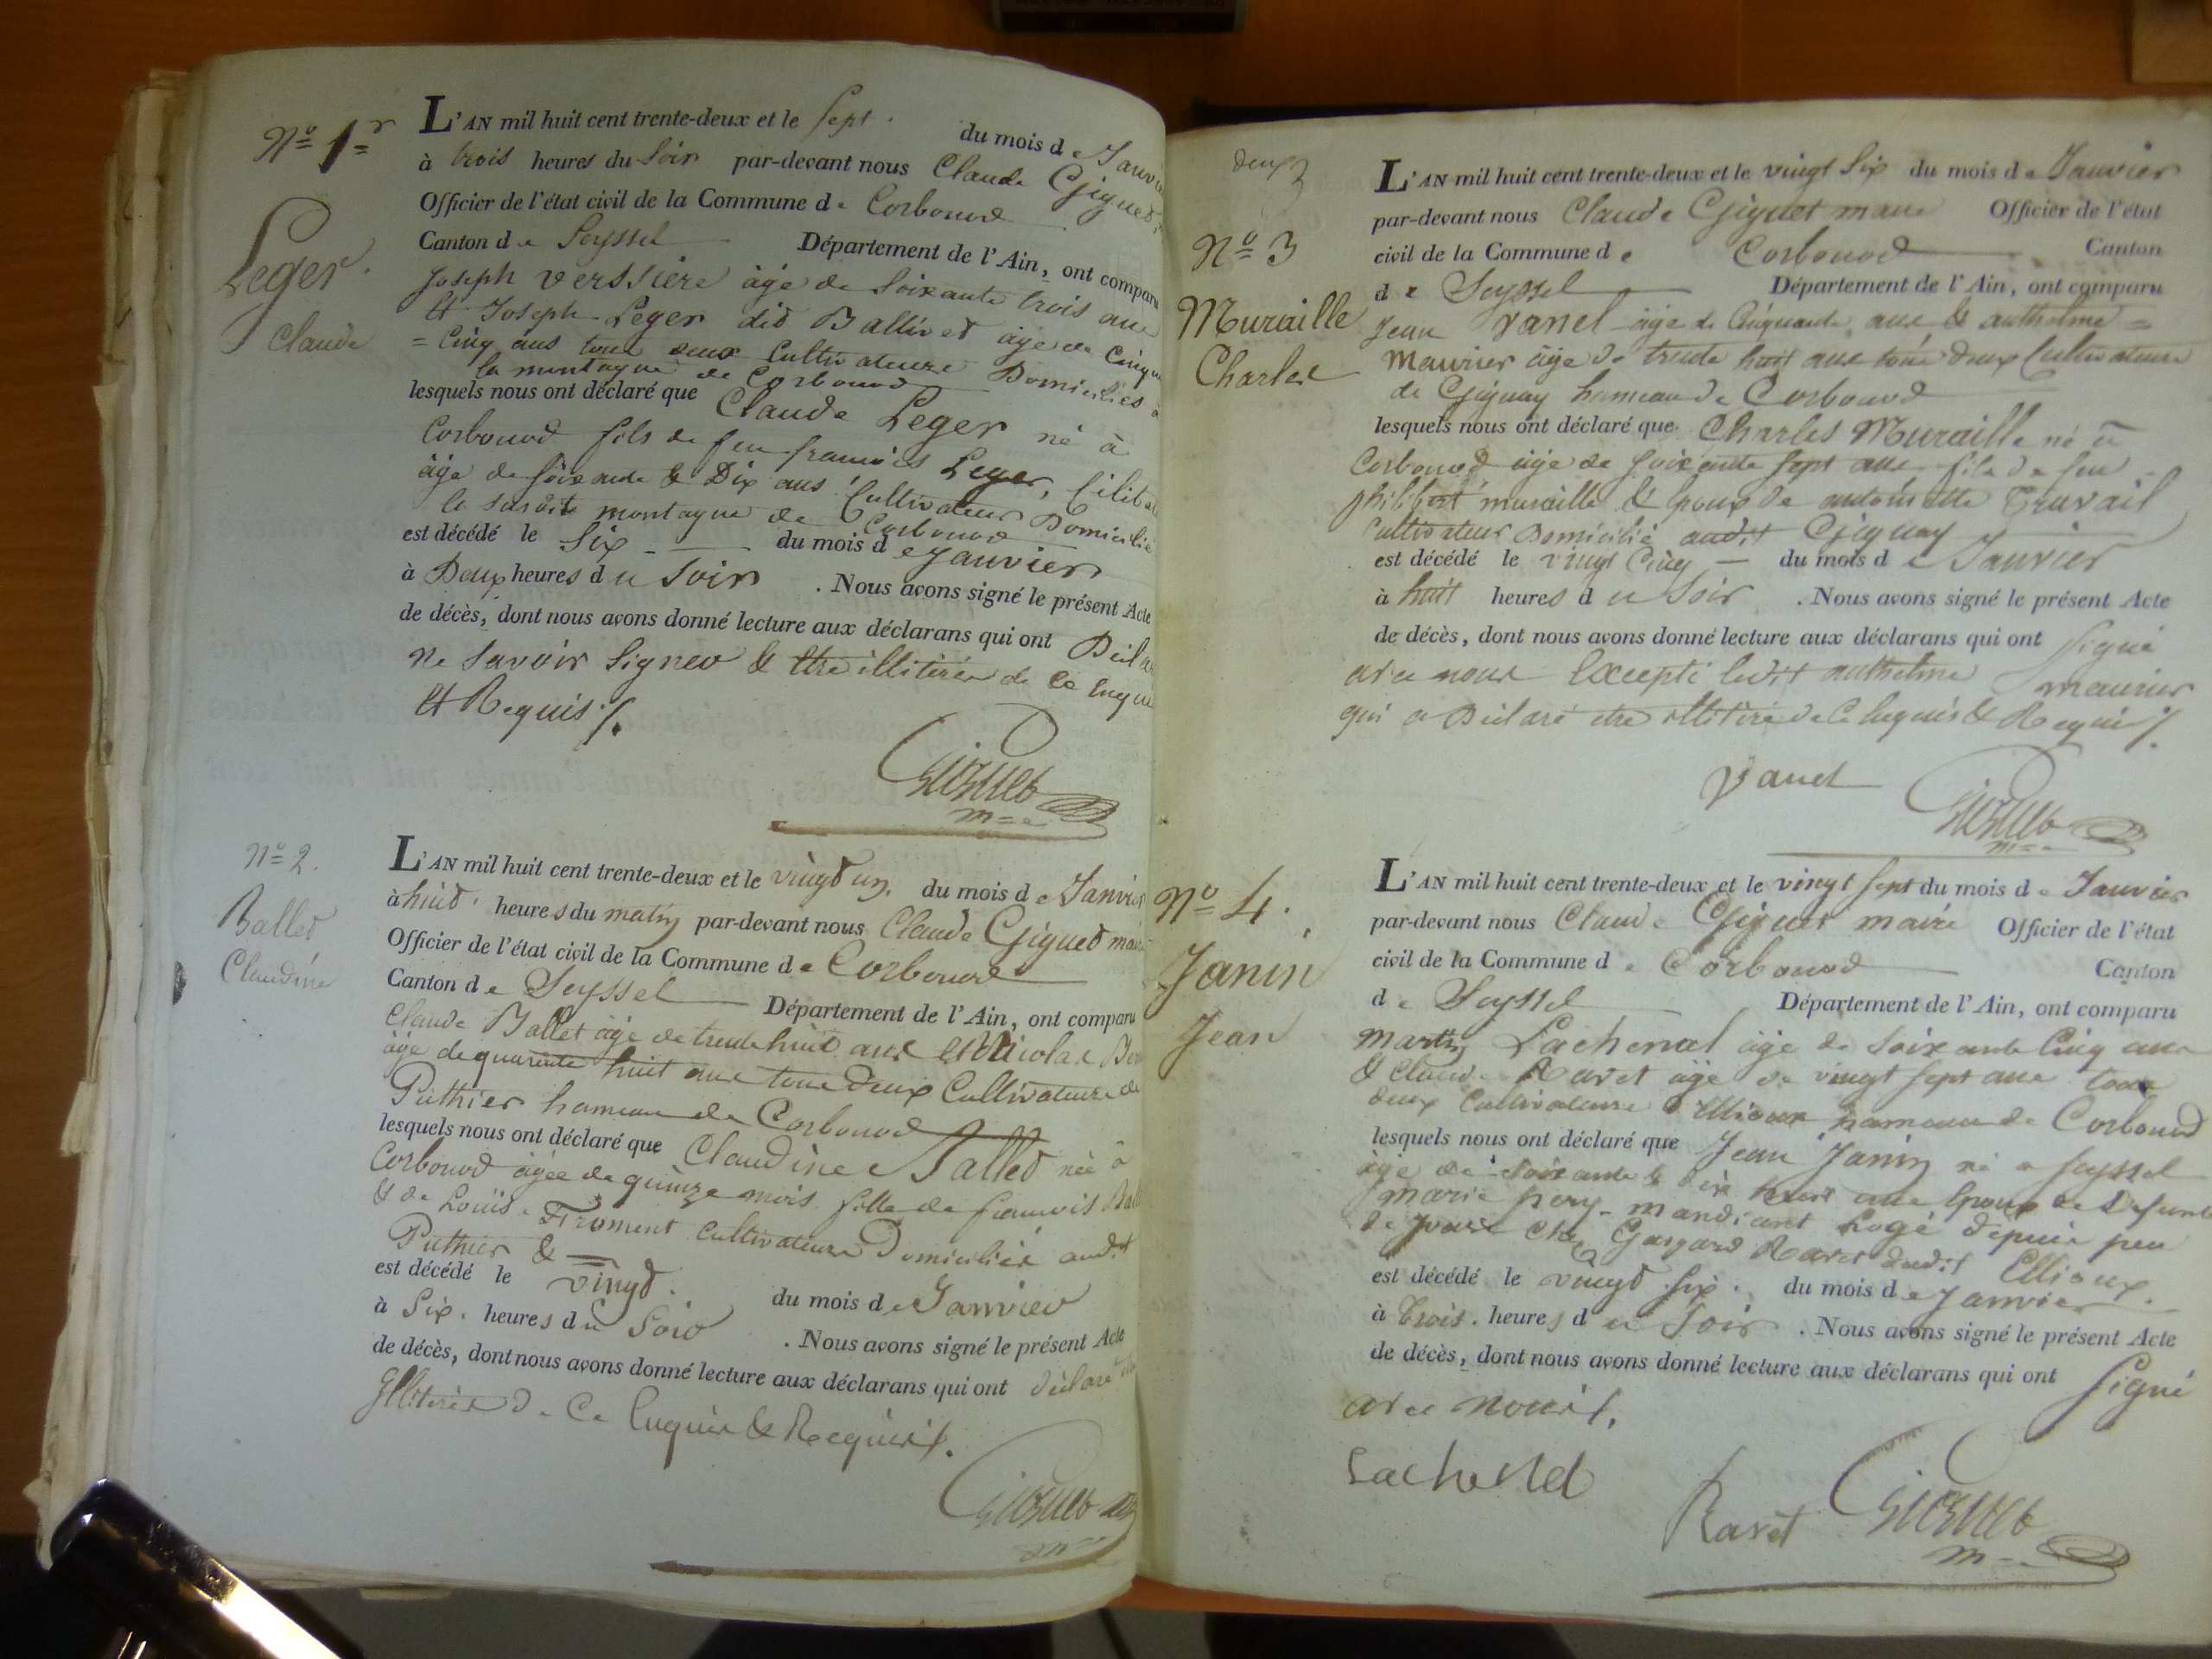 N° 1er
Leger
Claude
L'AN mil huit cent trente-deux et le sept du mois de Janvi
à trois heures du soir par-devant nous Claude Giguet
Officier de l'état civil de la Commune de Corbonod
Canton de Seyssel Département de l'Ain, ont comparu
Joseph verssiere âgé de soixante trois ans
et Joseph Leger dit Ballivet âgé de cinqu
= cinq ans tous deux cultivateurs Domiciliés à
la montagne de Corbonod
lesquels nous ont déclaré que Claude Leger né à
Corbonod fils de feu francois Leger, Celibat
âgé de soixante & Dix ans Cultivateur Domicilié
la susdite montagne de Corbonod
est décédé le six du mois de Janvier
à Deux heures du soir . Nous avons signé le présent Acte
de décès, dont nous avons donné lecture aux déclarans qui ont Décla
ne savoir signer & être illitérés de ce enqui
et Requis
Giguet
m=e
N° 2.
Ballet
Claudine
L'AN mil huit cent trente-deux et le vingt un du mois de Janvier
à huit heures du matin par-devant nous Claude Giguet mai
Officier de l'état civil de la Commune de Corbonod
Canton de Seyssel Département de l'Ain, ont comparu
Claude Ballet âgé de trente huit ans et Nicolas
âgé de quarante huit ans tous deux Cultivateurs de
Puthier hameau de Corbonod
lesquels nous ont déclaré que Claudine Ballet née à
Corbonod âgée de quinze mois fille de francois Ball
& de Louise Froment cultivateurs Domiciliés audit
Puthier &
est décédé le vingt du mois de Janvier
à six heures du soir . Nous avons signé le présent Acte
de décès, dont nous avons donné lecture aux déclarans qui ont déclaré
Illitérés de Ce Enquis & Requis
Giguet
deux
N° 3
Muraille
Charles
L'AN mil huit cent trente-deux et le vingt six du mois de Janvier
par-devant nous Claude Giguet maire Officier de l'état
civil de la Commune de Corbonod Canton
de Seyssel Département de l'Ain, ont comparu
Jean Vanel âgé de Cinquante ans & anthelme =
Maurier âgé de trente huit ans tous deux Cultivateurs
de Gignay hameau de Corbonod
lesquels nous ont déclaré que Charles Muraille né à
Corbonod âgé de soixante sept ans fils de feu
philibert muraille & époux de antoinette Travail
Cultivateur Domicilié audit Gignay
est décédé le vingt Cinq du mois de Janvier
à huit heures du soir . Nous avons signé le présent Acte
de décès, dont nous avons donné lecture aux déclarans qui ont signé
avec nous Excepté ledit anthelme maurier
qui a Déclaré être illitéré de Ce Enquis & Requis
Vanel
Giguet
m=e
N° 4.
Janin
Jean
L'AN mil huit cent trente-deux et le vingt sept du mois de Janvier
par-devant nous Claude Giguet maire Officier de l'état
civil de la Commune de Corbonod Canton
de Seyssel Département de l'Ain, ont comparu
Martin Lachenal âgé de soixante Cinq ans
& Claude Ravet âgé de vingt sept ans tous
deux Cultivateurs d'Ellioux hameau de Corbonod
lesquels nous ont déclaré que Jean Janin né à Seyssel
âgé de soixante & dix huit ans époux de Defunte
marie pery mandiant Logé depuis peu
de jours chez Gaspard Ravet dudit Ellioux.
est décédé le vingt six du mois de Janvier
à trois heures du soir . Nous avons signé le présent Acte
de décès, dont nous avons donné lecture aux déclarans qui ont signé
avec nous
Lachenal
Ravet
Giguet
m=e